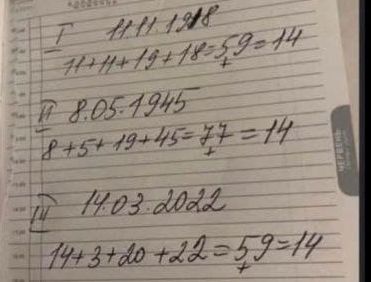 I 11.11.1918
11+11+19+18=59=14
II 8.05.1945
8+5+19+45=77=14
III 14.03.2022
14+3+20+22=59=14
ЧЕРВЕНЬ